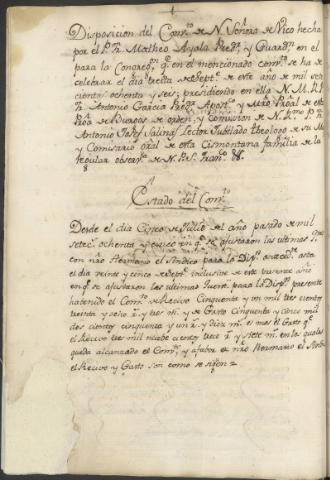 Disposición del Conv.to de N. Señora de Vico hecha
por el P.e Fr. Matheo Ayala Pred.r y Guardian en el
para la Congreg.n q.e en el mencionado conv.to se ha de
celebrar el dia treita de Sept.e de este año de mil sete
cientos ochenta y seis; presidiendo en ella N. M. R. P.
Fr. Antonio Garcia Pred.r Apost.co y Mro Pral de esta
Pro.a de Burgos de orden, y Comision de N. R.mo P. Fr.
Antonio Josef Salinas Lector Jubilado theologo de su Mag.
y Comisario Gral de esta Cismontana familia de la
regular observ.a de N. P. S. Fran.co &.
Estado del Conv.to
Desde el dia Cinco de Julio del año pasado de mil
setec.s ochenta y cinco en q.e se ajustaron las ultimas
con nro Hermano el Sindico para la Disp.n antec.te asta
el dia veinte y cinco de Sept.e inclusive de este presente año
en q.e se ajustaron las ultimas para la Disp.n presente
habenido el Conv.to de Recivo Cinquenta y un mil tres cientos
treinta y ocho r.s y tres m.s y de Gasto Cinquenta y cinco mil
dos cientos cinquenta y un r.s y Diez m.s es mas el Gasto q.e
el Recivo tres mil nuebe cientos trece r.s y siete m.s en los quales
queda alcanzado el Conv.to y a favor de nro Hermano el Sindico
el Recivo y Gasto son como se siguen